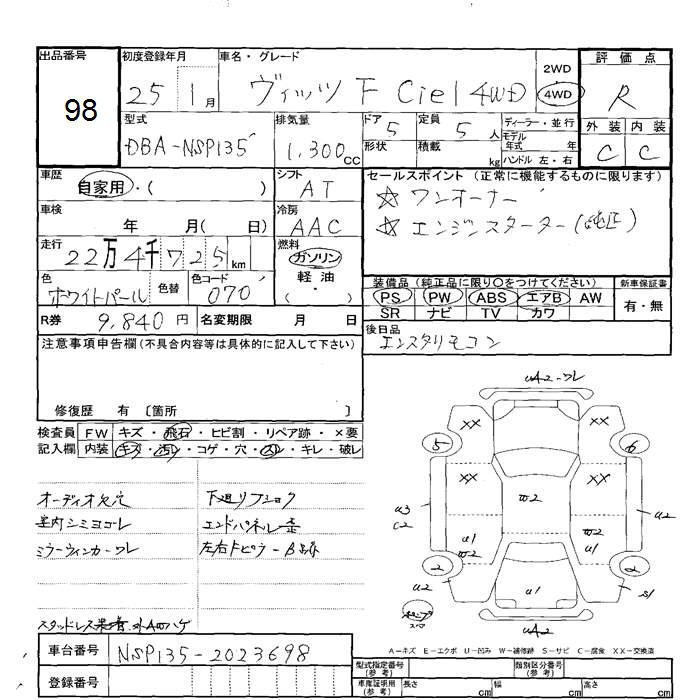 出品番号
98
初度登録年月
25 1月
車名・グレード
ヴィッツ F Ciel 4WD
2WD
4WD
評価点
R
型式
DBA-NSP135
排気量
1,300cc
ドア 5
形状
定員 5人
積載 kg
ディーラー・並行
モデル年式 年
ハンドル 左・右
外装 内装
C C
車歴
自家用・( )
シフト
AT
車検
年 月( 日)
冷房
AAC
走行
22万4千725km
燃料
ガソリン
軽油・
( )
色
ホワイトパール
色替
色コード
070
R券 9,840円
名変期限 月 日
セールスポイント(正常に機能するものに限ります)
☆ ワンオーナー
☆ エンジンスターター(純正)
装備品(純正品に限り○をつけてください)
PS PW ABS エアB AW
SR ナビ TV カワ
新車保証書
有・無
後日品
エンスタリモコン
注意事項申告欄(不具合内容等は具体的に記入して下さい)
修復歴 有 〔箇所 〕
検査員記入欄
FW キズ・飛石・ヒビ割・リペア跡・×要
内装 キズ・汚レ・コゲ・穴・スレ・キレ・破レ
オーディオ欠穴
室内シミヨゴレ
ミラーウィンカーワレ
下廻リフショク
エンドパネル歪
スタッドレス
UA2-ワレ
XX XX
5 6
XX XX
W2
U3
C2
U2
U1
W2
W2
U1
2 2
U2
U1
S1
UA2
A-キズ E-エクボ U-凹み W-補修跡 S-サビ C-腐食 XX-交換済
車台番号
NSP135-2023698
登録番号
型式指定番号(参考)
類別区分番号(参考)
車庫証明用(参考)
長さ cm
幅 cm
高さ cm